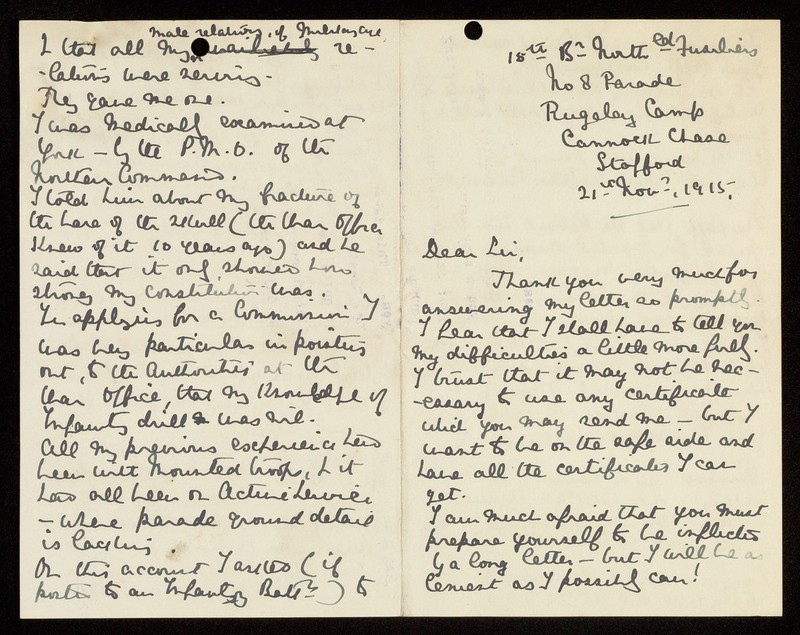 18th Bn North'ld Fusiliers
No 8 Parade
Rugeley Camp
Cannock Chase
Stafford
21st Nov?, 1915.
Dear Sir,
Thank you very much for
answering my letter so promptly.
I fear that I shall have to tell you
my difficulties a little more fully.
I trust that it may not be nec-
-essary to use any certificate
which you may send me – but I
want to be on the safe side and
have all the certificates I can
get.
I am much afraid that you must
prepare yourself to be inflicted
by a long letter – but I will be as
lenient as I possibly can!
male relations, of Military age
& that all my re-
-lations were serving.
They gave me one.
I was medically examined at
York – by the P.M.O. of the
Northern Command.
I told him about my fracture of
the base of the skull (the War Office
knew of it 10 years ago) and he
said that it only showed how
strong my constitution was.
In applying for a Commission I
was very particular in pointing
out, to the Authorities at the
War Office, that my knowledge of
Infantry drill was nil.
All my previous experience has
been with Mounted troops, & it
has all been on Active Service
– where parade ground detail
is lacking.
On this account I asked (if
posted to an Infantry Battn) to